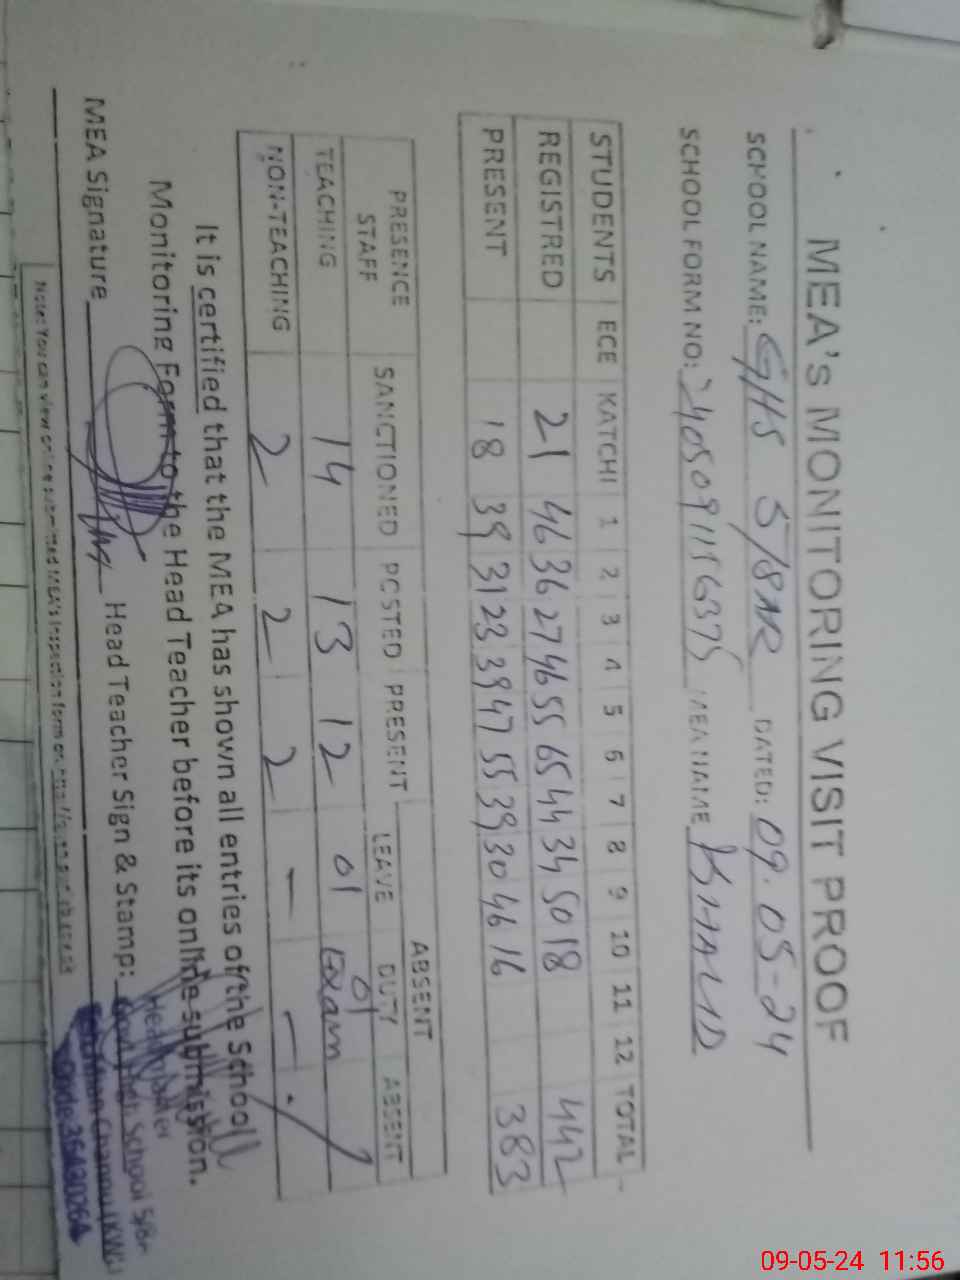 MEA'S MONITORING VISIT PROOF
SCHOOL NAME: GHS 5/8AR DATED: 09.05-24
SCHOOL FORM NO: 24050911156375 MEA NAME KHALID
STUDENTS ECE KATCHI 1 2 3 4 5 6 7 8 9 10 11 12 TOTAL
REGISTRED 21 46 36 27 46 55 65 44 34 50 18 442
PRESENT 18 39 31 23 39 47 55 39 30 46 16 383
PRESENCE STAFF SANCTIONED POSTED PRESENT ABSENT
LEAVE DUTY ABSENT
TEACHING 14 13 12 01 01 Exam
NON-TEACHING 2 2 2 - -
It is certified that the MEA has shown all entries of the School
Monitoring Form to the Head Teacher before its online submission.
MEA Signature Head Teacher Sign & Stamp:
Headmaster
Govt High School 5/8AR
Channu (KWL)
Code 36430264
Note: You can view online submitted MEA's Inspection form on
09-05-24 11:56